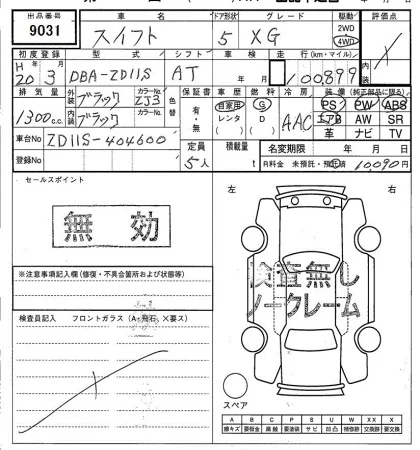 出品番号 車名 ドア形状 グレード 駆動 評価点
9031 スイフト 5 XG 2WD 4WD
初度登録 型式 シフト 車検 走行(km・マイル)
H20年3月 DBA-ZD11S AT 年 月 100899
排気量 外装 カラーNo. 色替 保証書 車歴 燃料 冷房 装備(純正部品に限る)
1300c.c. ブラック ZJ3 有・無 自家用 G AAC PS PW ABS
内装 カラーNo. レンタ D エアB AW SR
ブラック ( ) ( ) 革 ナビ TV
車台No ZD11S-404600 定員 積載量 名変期限 年 月 日
登録No 5人 t R料金 未預託・預託済 10090円
セールスポイント
無効
左 右
※注意事項記入欄(修復・不具合箇所および状態等)
検査無し
ノークレーム
検査員記入 フロントガラス(A・飛石、X要ス)
スペア
A B C P S U W X XX
線キズ 要板金 腐蝕 要塗装 サビ 凹凸 補修跡 交換跡 要交換